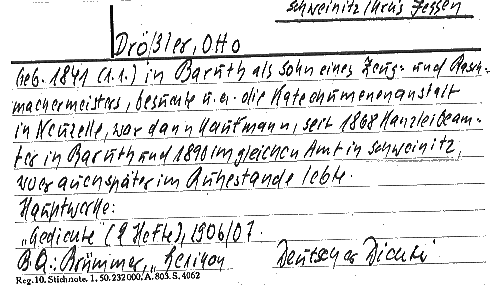 Schweinitz Krs Jessen
Drößler, Otto
Geb. 1841 (1.1.) in Baruth als Sohn eines Zeug- und Rasch-
machermeisters, besuchte u.a. die Katechumenenanstalt
in Neuzelle, war dann Kaufmann, seit 1868 Kanzleibeam-
ter in Baruth und 1890 im gleichen Amt in Schweinitz,
wo er auch später im Ruhestande lebte.
Hauptwerke:
„Gedichte" (2 Hefte), 1906/07.
B.Q.: Brümmer, „Lexikon Deutscher Dichter
Reg. 10. Stichnote. 1. 50. 232 000. A. 803. S. 4062